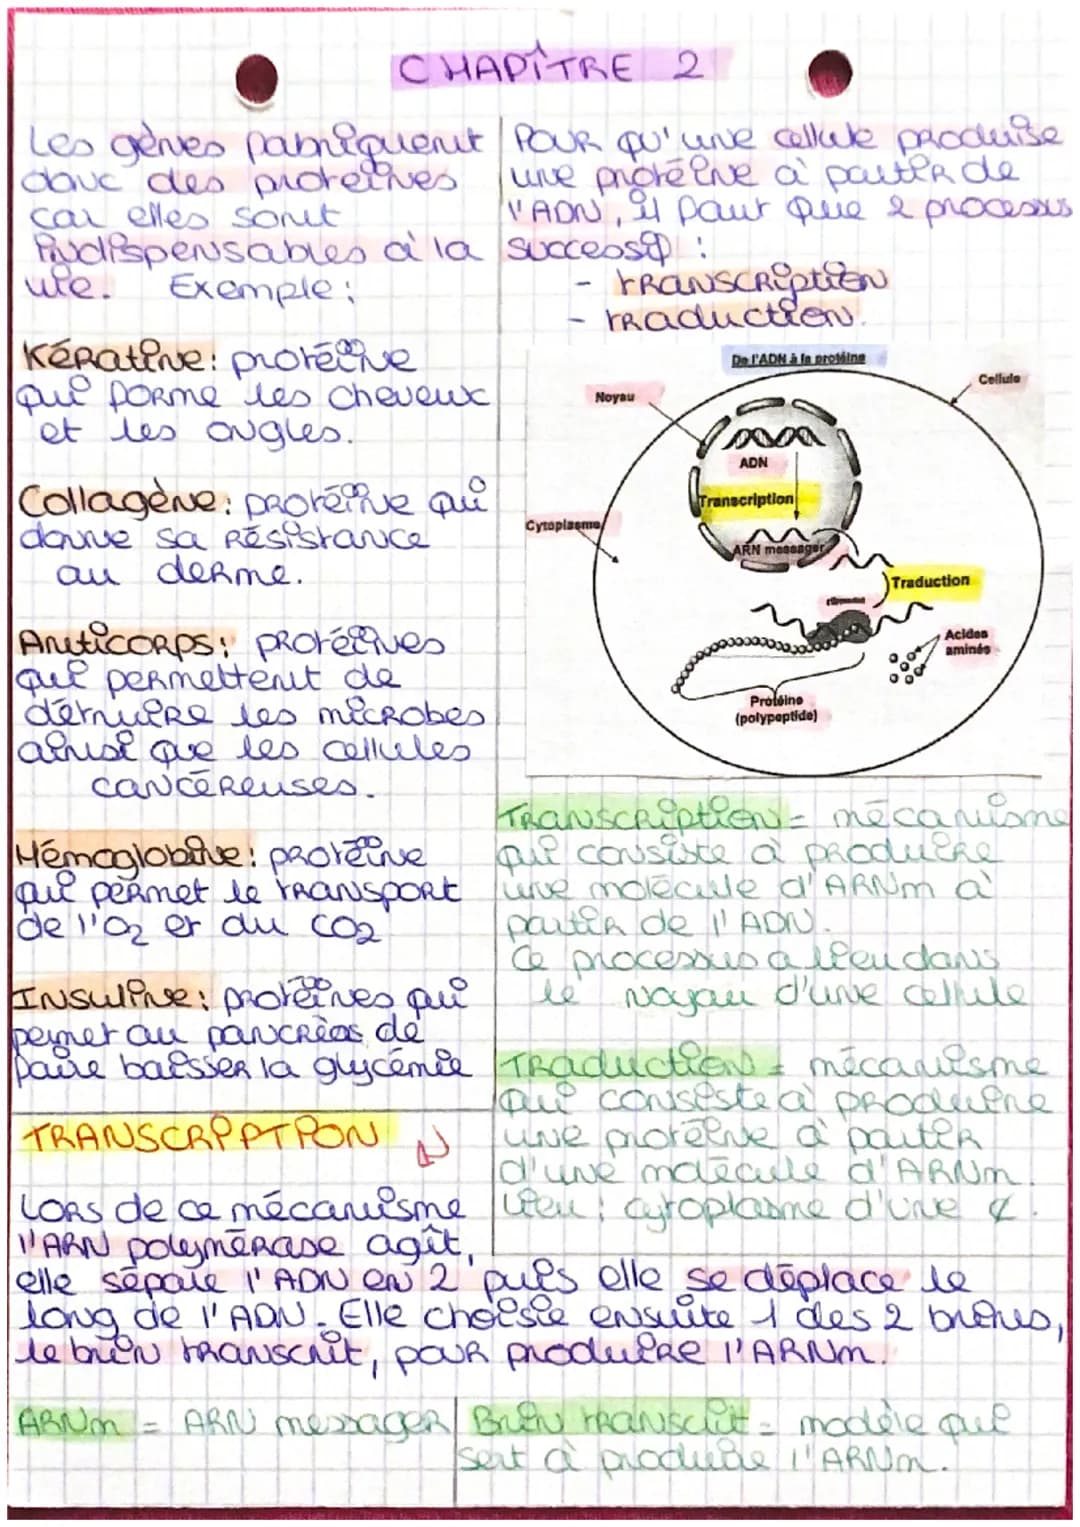 CHAPÎTRE 2
Les gènes fabriquent
donc des proteînes
car elles sont
indispensables à la
vie. Exemple :
Kératine : protéine
qui forme les cheveux
et les ongles.
Collagène : protéine qui
donne sa résistance
au derme.
Anticorps : protéines
qui permettent de
détruire les microbes
ainsi que les cellules
cancéreuses.
Hémoglobine : protéine
qui permet le transport
de l'O2 et du CO2
Insuline : protéines qui
permet au pancréas de
faire baisser la glycémie
Pour qu'une cellule produise
une protéine à partir de
l'ADN, il faut que 2 processus
successif :
- transcription
- traduction.
De l'ADN à la protéine
Cellule
Noyau
ADN
Transcription
Cytoplasme
ARN messager
Traduction
ribosome
Acides
aminés
Protéine
(polypeptide)
Transcription = mécanisme
qui consiste à produire
une molécule d'ARNm à
partir de l'ADN.
Ce processus a lieu dans
le noyau d'une cellule
Traduction = mécanisme
qui consiste à produire
une protéine à partir
d'une molécule d'ARNm.
Lieu : cytoplasme d'une ¢.
TRANSCRIPTION N
Lors de ce mécanisme
l'ARN polymérase agit,
elle sépare l'ADN en 2 puis elle se déplace le
long de l'ADN. Elle choisie ensuite 1 des 2 brins,
le brin transcrit, pour produire l'ARNm.
ARNm = ARN messager
Brin transcrit = modèle qui
sert à produire l'ARNm.